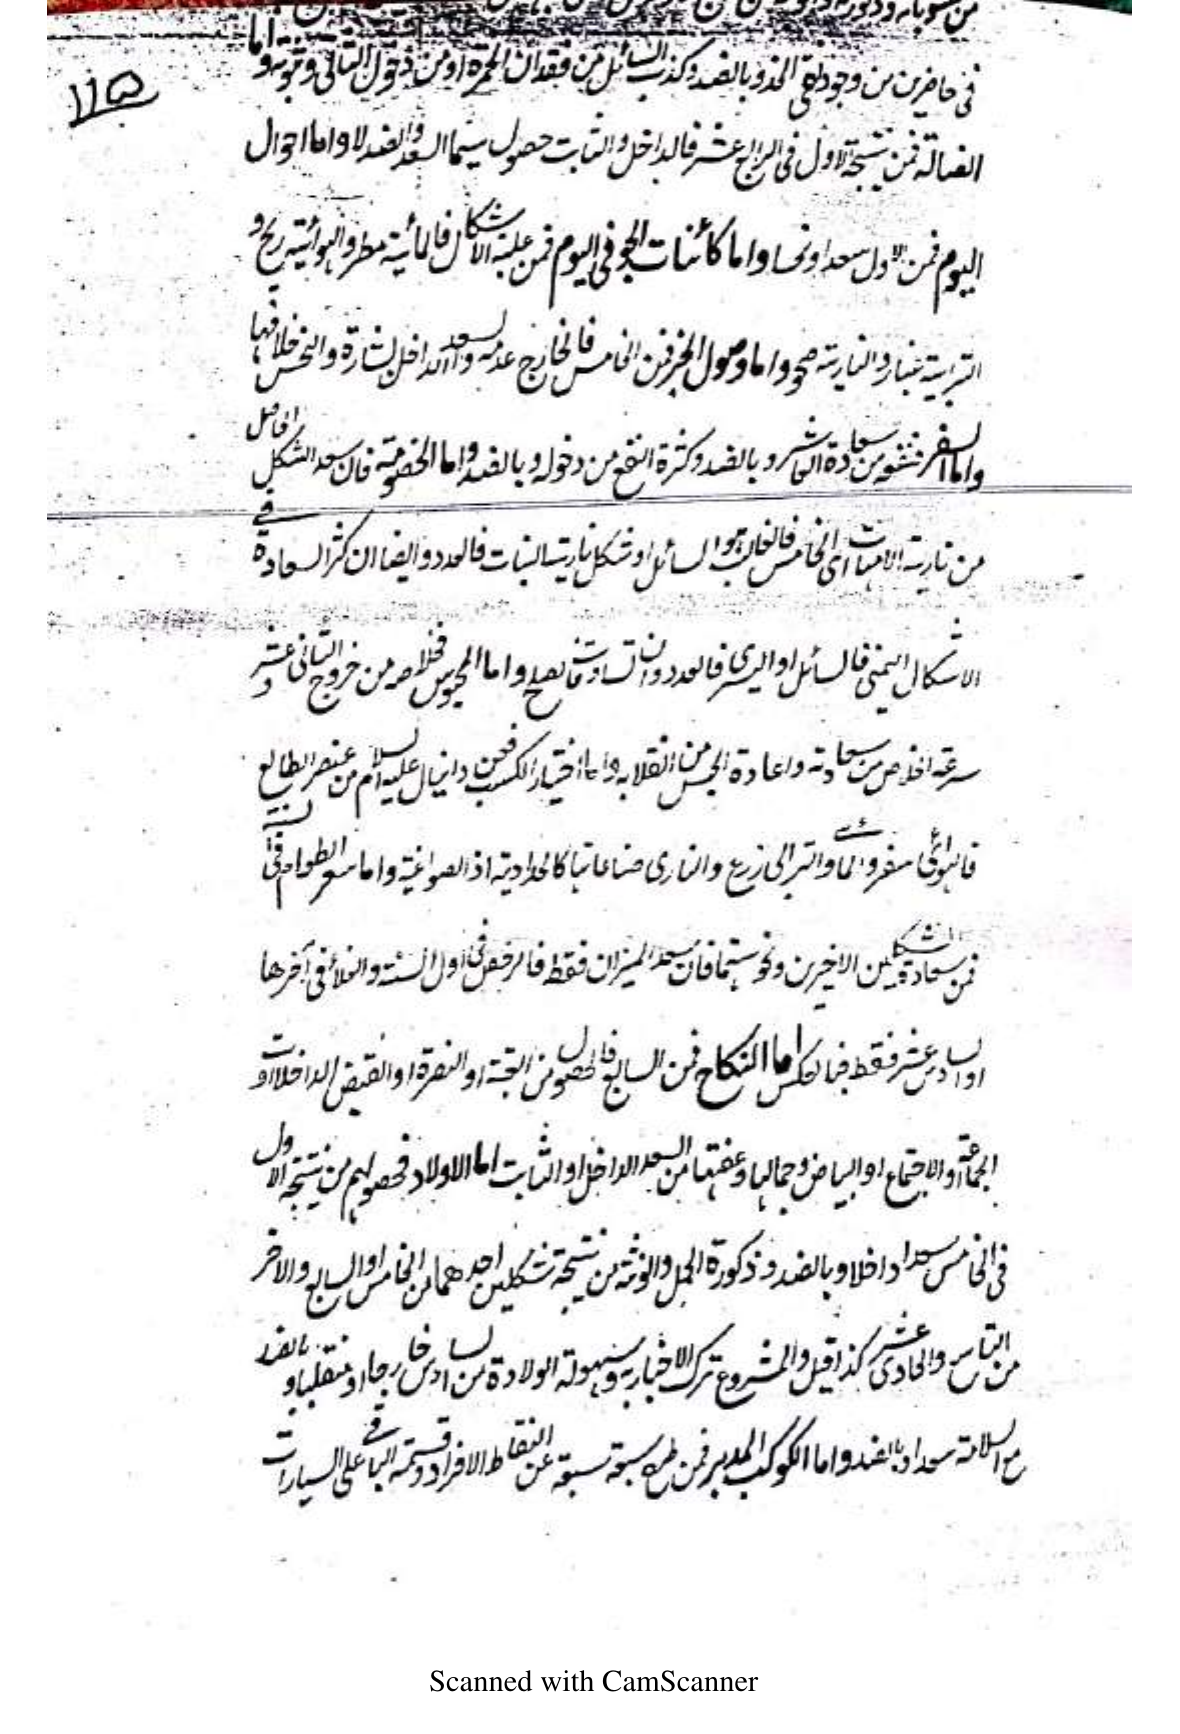 ١١٥
فى حاضرين من وجود نقى الخد وبالضد وكذب السائل من فقدان الحمرة او من دخول الثانى وثبوته واما
الضالة فمن نتيجة الاول فى الرابع عشر فالداخل والثابت حصول سيما السعد والضد لا واما احوال
اليوم فمن الاول سعدا ونحسا واما كائنات الجو فى اليوم فمن غلبة الاشكال فالمائية مطر والهوائية ريح و
الترابية غبار والنارية صحو واما وصول الخبر فمن الخامس فالخارج عدمه والسعد الداخل بشارة والنحس خلافها
واما السفر من سعادة العاشر وبالضد وكثرة النفع من دخوله وبالضد واما الخصومة فان سعد الشكل الحاصل
من نارية الامهات اى الخامس فالغالب هو السائل او شكل نارية البنات فالعدد وايضا ان كثر السعادة فى
الاشكال اليمنى فالسائل او اليسرى فالعدو وان تساوت فالصلح واما المحبوس فخلاصه من خروج الثانى عشر و
سرعة الخلاص من سعادته واعادة الحبس من انقلابه واما اختيار الكسب فعن دانيال عليه السلام من عنصر الطالع
فالهوائى سفر والمائى والترابى زرع والنارى صناعاتها كالحدادية اذ الصواغية واما سعر الطعام فى السنة
فمن سعادة الشكلين الاخيرين ونحوستهما فان سعد الميزان فقط فالرخص فى اول السنة والغلا فى آخرها
او السادس عشر فقط فبالعكس اما النكاح فمن السابع فالحصول من العتبة او النقرة او القبض الداخلات او
الجماعة او الاجتماع او البياض وجمالها وعفتها من السعد الداخل او الثابت اما الاولاد فحصولهم من نتيجة الاول
فى الخامس سعدا داخلا وبالضد وذكورة الحمل وانوثته من نتيجة شكلين احدهما من الخامس او السابع والاخر
من التاسع والحادى عشر كذا قيل والمشروع ترك الاخبار به وسهولة الولادة من السادس خارجا او منقلبا و بالضد
مع السلامة سعدا وبالضد واما الكوكب المدبر فمن طرح سبعة سبعة عن النقاط الافراد وقسمة الباقى على السيارات
Scanned with CamScanner